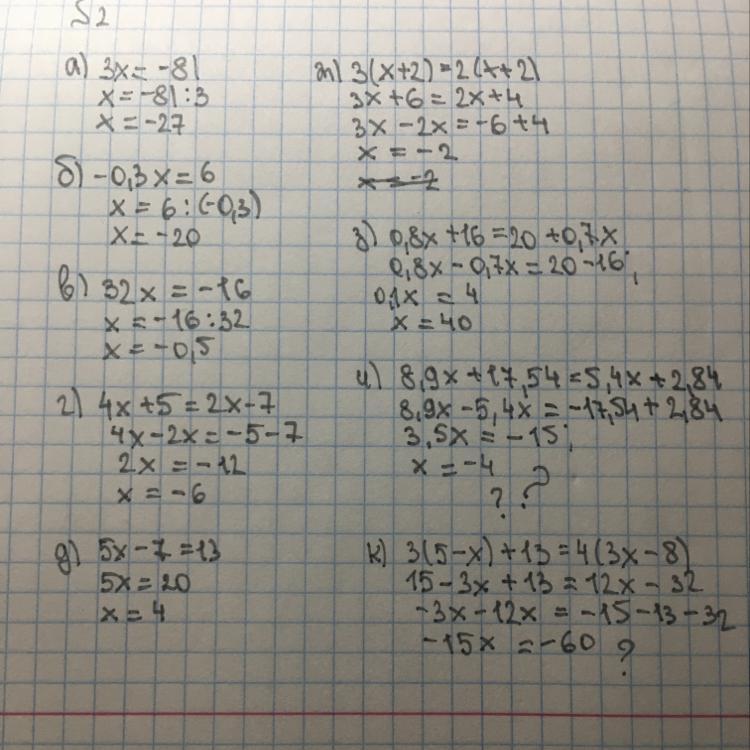 S2
а) 3x = -81
x = -81 : 3
x = -27
б) -0,3x = 6
x = 6 : (-0,3)
x = -20
в) 32x = -16
x = -16 : 32
x = -0,5
г) 4x + 5 = 2x - 7
4x - 2x = -5 - 7
2x = -12
x = -6
д) 5x - 7 = 13
5x = 20
x = 4
ж) 3(x+2) = 2(x+2)
3x + 6 = 2x + 4
3x - 2x = -6 + 4
x = -2
x = -2
з) 0,8x + 16 = 20 + 0,7x
0,8x - 0,7x = 20 - 16;
0,1x = 4
x = 40
и) 8,9x + 17,54 = 5,4x + 2,84
8,9x - 5,4x = -17,54 + 2,84
3,5x = -15;
x = -4 ?
? ?
к) 3(5-x) + 13 = 4(3x - 8)
15 - 3x + 13 = 12x - 32
-3x - 12x = -15 - 13 - 32
-15x = -60 ?